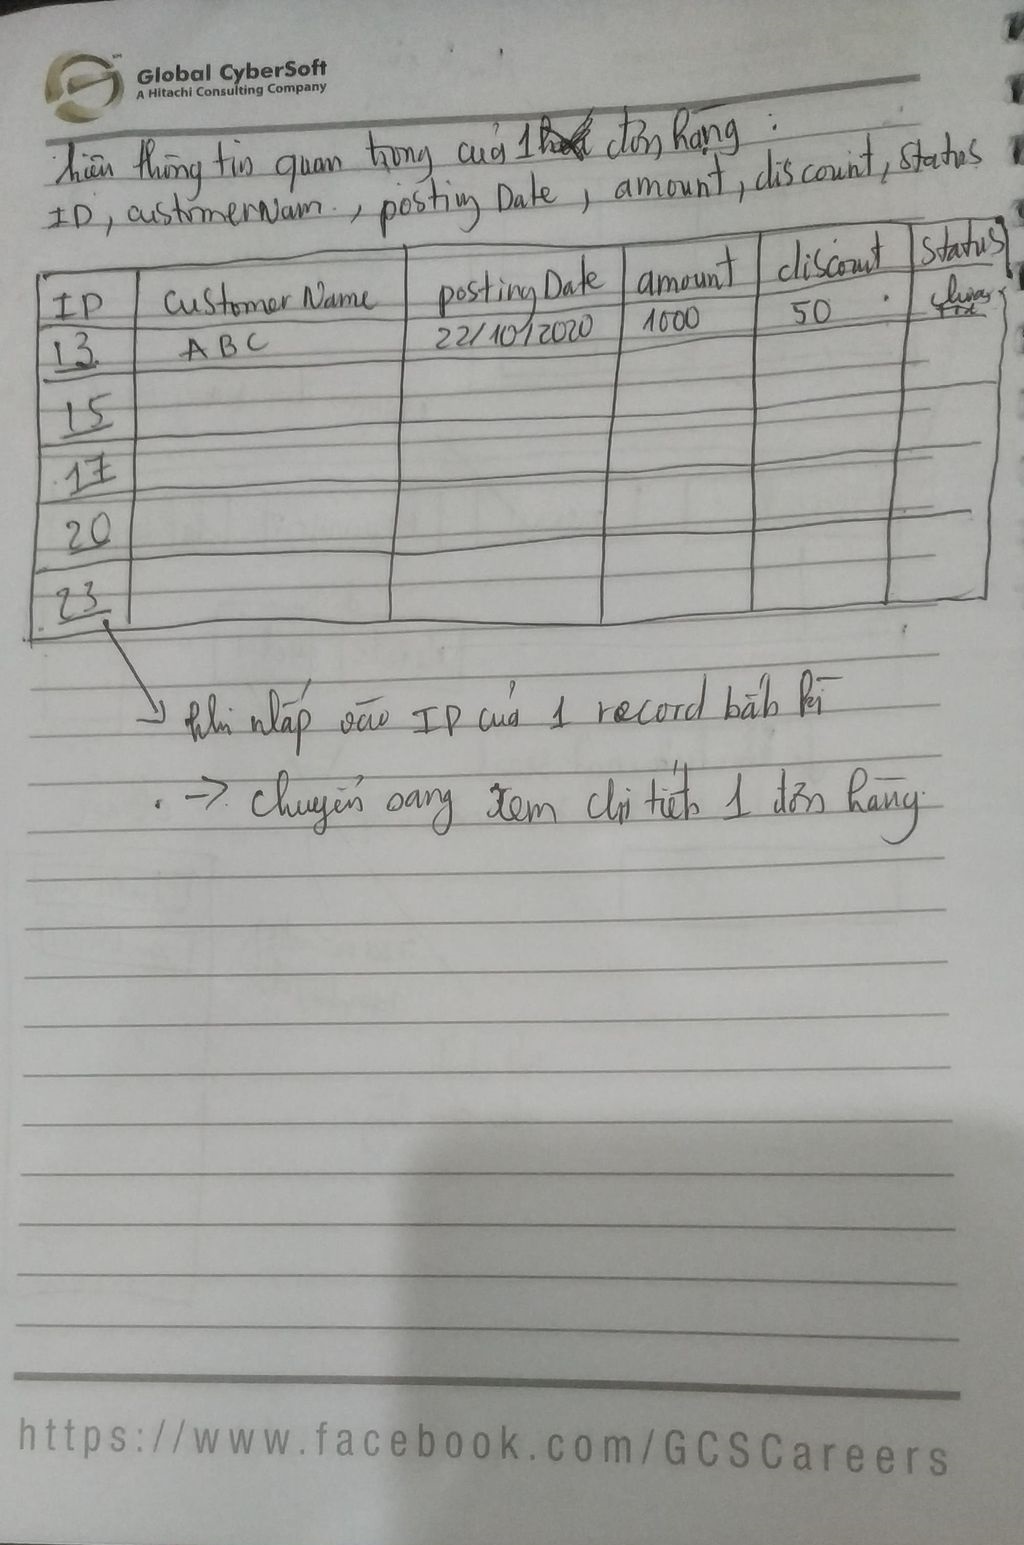 Global CyberSoft
A Hitachi Consulting Company
hiện thông tin quan trọng của 1 đơn hàng :
ID, customerNam., posting Date, amount, discount, status
ID customer Name posting Date amount discount status
13 ABC 22/10/2020 1000 50
15
17
20
23
khi nhấp vào ID của 1 record bất kì
-> chuyển sang xem chi tiết 1 đơn hàng.
https://www.facebook.com/GCSCareers